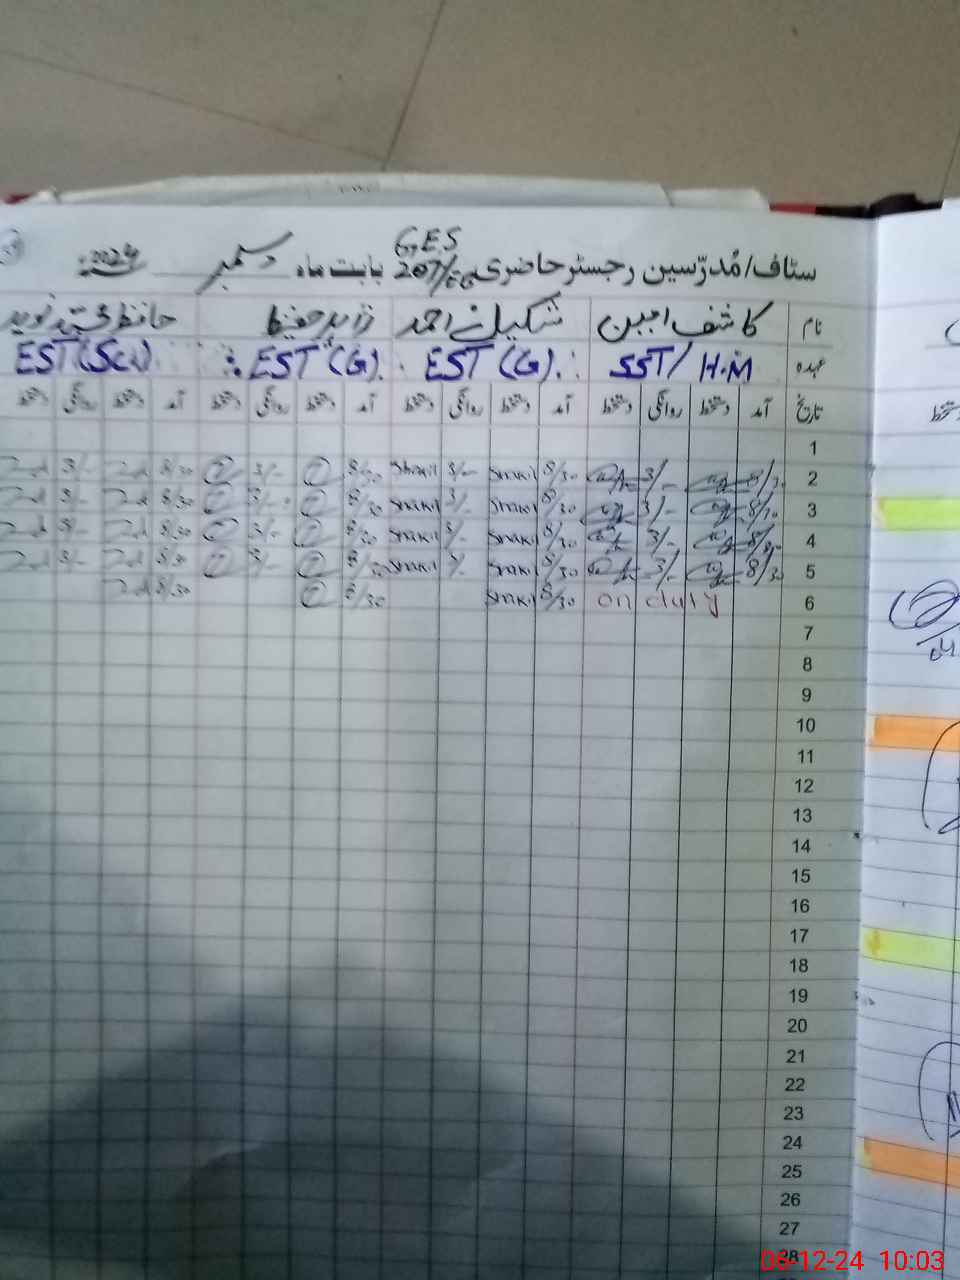 سٹاف/مُدرّسین رجسٹر حاضری GES 207/EB بابت ماہ دسمبر 2024ء
نام کاشف امین شکیل احمد زاہد حفیظ حافظ محمد نوید
عہدہ SST/H.M EST(G). EST(G). EST(Sci).
تاریخ آمد دستخط روانگی دستخط آمد دستخط روانگی دستخط آمد دستخط روانگی دستخط آمد دستخط روانگی دستخط
1
2 8/30 3/- 8/30 Shakil 3/- Shakil 8/30 3/- 8/30 3/-
3 8/30 3/- 8/30 Shakil 3/- Shakil 8/30 3/- 8/30 3/-
4 8/30 3/- 8/30 Shakil 3/- Shakil 8/30 3/- 8/30 3/-
5 8/30 3/- 8/30 Shakil 3/- Shakil 8/30 3/- 8/30 3/-
6 on duty 8/30 Shakil 8/30 8/30
7
8
9
10
11
12
13
14
15
16
17
18
19
20
21
22
23
24
25
26
27
28
08-12-24 10:03